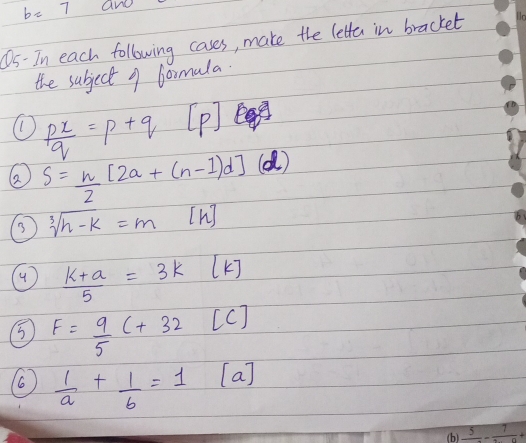 b= 7 and
Q5-In each following cases, make the letter in bracket
the subject of formula.
① px/q = p+q [p]
② S = n/2 [2a + (n-1)d] (d)
③ ∛h-k = m [h]
④ k+a/5 = 3k [k]
⑤ F = 9/5 C + 32 [C]
⑥ 1/a + 1/b = 1 [a]
(b)